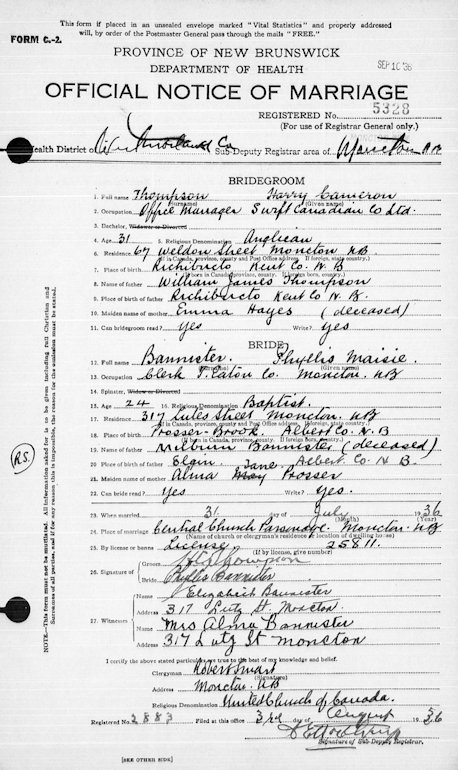 This form if placed in an unsealed envelope marked "Vital Statistics" and properly addressed
will, by order of the Postmaster General pass through the mails "FREE."
FORM C.-2.
PROVINCE OF NEW BRUNSWICK
DEPARTMENT OF HEALTH
SEP 10 '36
OFFICIAL NOTICE OF MARRIAGE
REGISTERED No. 5328
(For use of Registrar General only.)
Health District of Westmorland Co Sub-Deputy Registrar area of Moncton N.B
BRIDEGROOM
1. Full name Thompson Harry Cameron
(Surname) (Given name)
2. Occupation Office Manager Swift Canadian Co Ltd.
3. Bachelor, Widower or Divorced
4. Age 31 5. Religious Denomination Anglican
6. Residence 67 Weldon Street Moncton NB
(If in Canada, province, county and Post Office address. If foreign, state country.)
7. Place of birth Richibucto Kent Co N.B
(If born in Canada, province, county. If foreign, state country.)
8. Name of father William James Thompson
9. Place of birth of father Richibucto Kent Co N.B.
10. Maiden name of mother Emma Hayes (deceased)
11. Can bridegroom read? Yes Write? Yes
BRIDE
12. Full name Bannister. Phyllis Maisie.
(Surname) (Given name)
13. Occupation Clerk T. Eaton Co. Moncton. NB
14. Spinster, Widow or Divorced
15. Age 24 16. Religious Denomination Baptist.
17. Residence 317 Lutes Street Moncton. NB
(If in Canada, province, county and Post Office address. If foreign, state country.)
18. Place of birth Prosser Brook Albert Co. N.B
19. Name of father Milburn Bannister (deceased)
20. Place of birth of father Elgin. Albert Co. N B.
21. Maiden name of mother Alma Jane May Prosser
22. Can bride read? Yes Write? Yes.
23. When married 31 day of July 1936
(Month) (Year)
24. Place of marriage Central Church Parsonage. Moncton. NB
(Name of church or clergyman's residence or location of dwelling house)
25. By license or banns License 25811.
(If by license, give number)
26. Signature of Groom Thompson
Bride Phyllis Bannister
27. Witnesses Name Elizabeth Bannister
Address 317 Lutz St. Moncton
Name Mrs Alma Bannister
Address 317 Lutz St Moncton
I certify the above stated particulars are true to the best of my knowledge and belief.
Clergyman Robert Smart
(Signature)
Address Moncton NB
Religious Denomination United Church of Canada.
Registered No. 2883 Filed at this office 3rd day of August 1936
Signature of Sub-Deputy Registrar.
[SEE OTHER SIDE]
NOTE.—This form must not be mutilated. All information asked for is to be given including full Christian and
Surnames of all parties, and if for any reason this is impossible, the reason for the omission must be stated.
R.S.